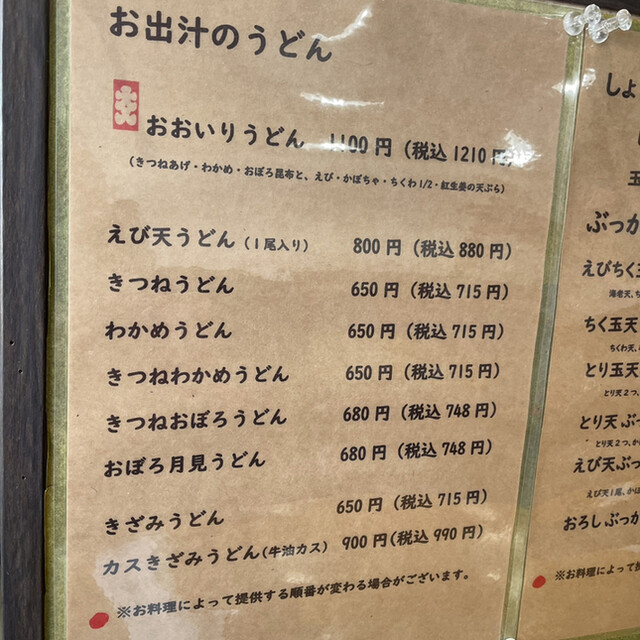 お出汁のうどん
おおいりうどん 1100円（税込1210円）
（きつねあげ・わかめ・おぼろ昆布と、えび・かぼちゃ・ちくわ1/2・紅生姜の天ぷら）
えび天うどん（1尾入り） 800円（税込880円）
きつねうどん 650円（税込715円）
わかめうどん 650円（税込715円）
きつねわかめうどん 650円（税込715円）
きつねおぼろうどん 680円（税込748円）
おぼろ月見うどん 680円（税込748円）
きざみうどん 650円（税込715円）
カスきざみうどん(牛油カス) 900円(税込990円)
※お料理によって提供する順番が変わる場合がございます。
しょ
玉
ぶっか
えびちく玉
海老天、ち
ちく玉天
ちくわ天、
とり玉天
とり天2つ、
とり天ぶっ
とり天2つ、か
えび天ぶっ
えび天1尾、かぼ
おろしぶっか
※お料理によって